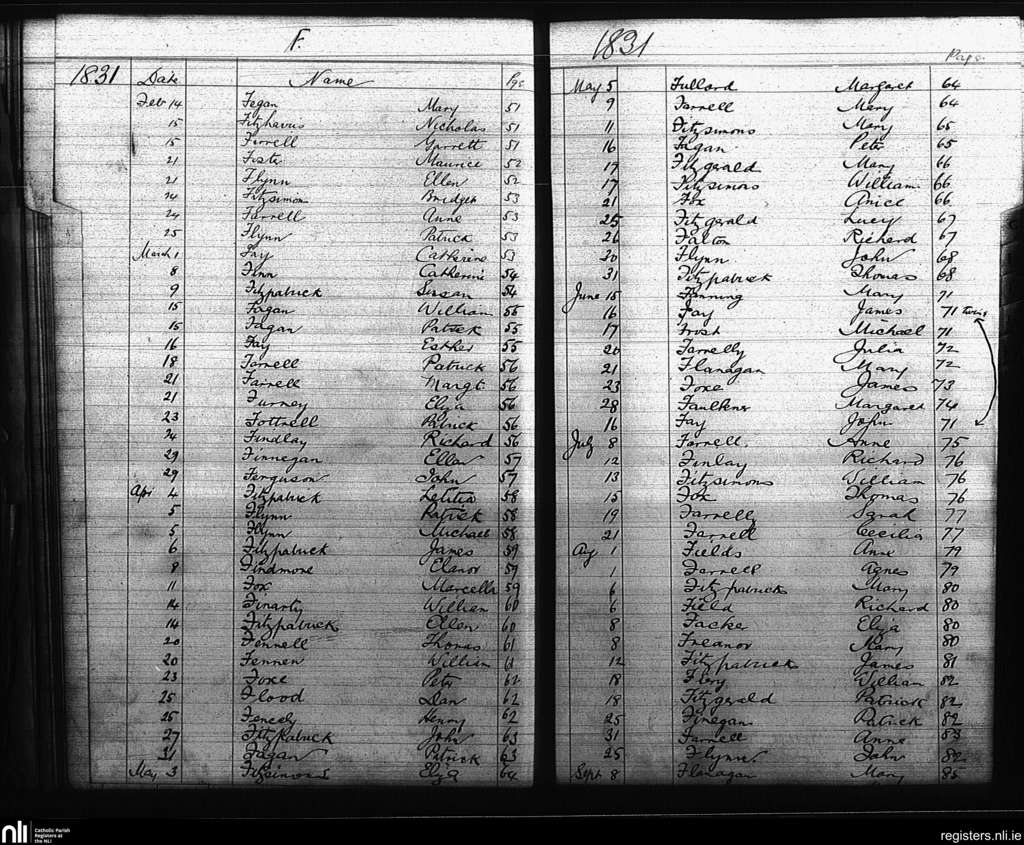 F.
1831 Date Name Pge
Feb 14 Fegan Mary 51
15 Fitzharris Nicholas 51
15 Farrell Garrett 51
21 Maurice 52
21 Flynn Ellen 52
24 Fitzsimon Bridget 53
24 Farrell Anne 53
25 Flynn Patrick 53
March 1 Fay Catherine 53
8 Finn Catherine 54
9 Fitzpatrick Susan 54
15 Fagan William 55
15 Fagan Patrick 55
16 Fay Esther 55
18 Farrell Patrick 56
21 Farrell Margt 56
21 Furney Eliza 56
23 Fottrell Patrick 56
24 Findlay Richard 56
29 Finnegan Ellen 57
29 Ferguson John 57
Apr 4 Fitzpatrick Letitia 58
5 Flynn Patrick 58
5 Flynn Michael 58
6 Fitzpatrick James 59
8 Findmore Elanor 59
11 Fox Marcella 59
14 Finarty William 60
14 Fitzpatrick Ellen 60
20 Fennell Thomas 61
20 Fennen William 61
23 Foxe Peter 62
25 Flood Dan 62
25 Feneely Henry 62
27 Fitzpatrick John 63
31 Fagan Patrick 63
May 3 Fitzsimons Eliza 64
1831
Page
May 5 Fullard Margaret 64
9 Farrell Mary 64
11 Fitzsimons Mary 65
16 Fagan Peter 65
17 Fitzgerald Mary 66
17 Fitzsimons William 66
21 Fox Anice 66
25 Fitzgerald Lucy 67
26 Falton Richard 67
30 Flynn John 68
31 Fitzpatrick Thomas 68
June 15 Fanning Mary 71
16 Fay James 71 twins
17 Frost Michael 71
20 Farrelly Julia 72
21 Flanagan Mary 72
23 Foxe James 73
28 Faulkner Margaret 74
16 Fay John 71
July 8 Farrell Anne 75
12 Finlay Richard 76
13 Fitzsimons William 76
15 Fox Thomas 76
19 Farrelly Sarah 77
21 Farrell Cecilia 77
Aug 1 Fields Anne 79
1 Farrell Agnes 79
6 Fitzpatrick Mary 80
6 Field Richard 80
8 Facke Eliza 80
8 Freanor Mary 80
12 Fitzpatrick James 81
18 Fiery William 82
18 Fitzgerald Patrick 82
25 Finegan Patrick 82
31 Farrell Anne 83
25 Flynn John 82
Sept 8 Flanagan Mary 85
nli Catholic Parish
Registers at
the NLI
registers.nli.ie